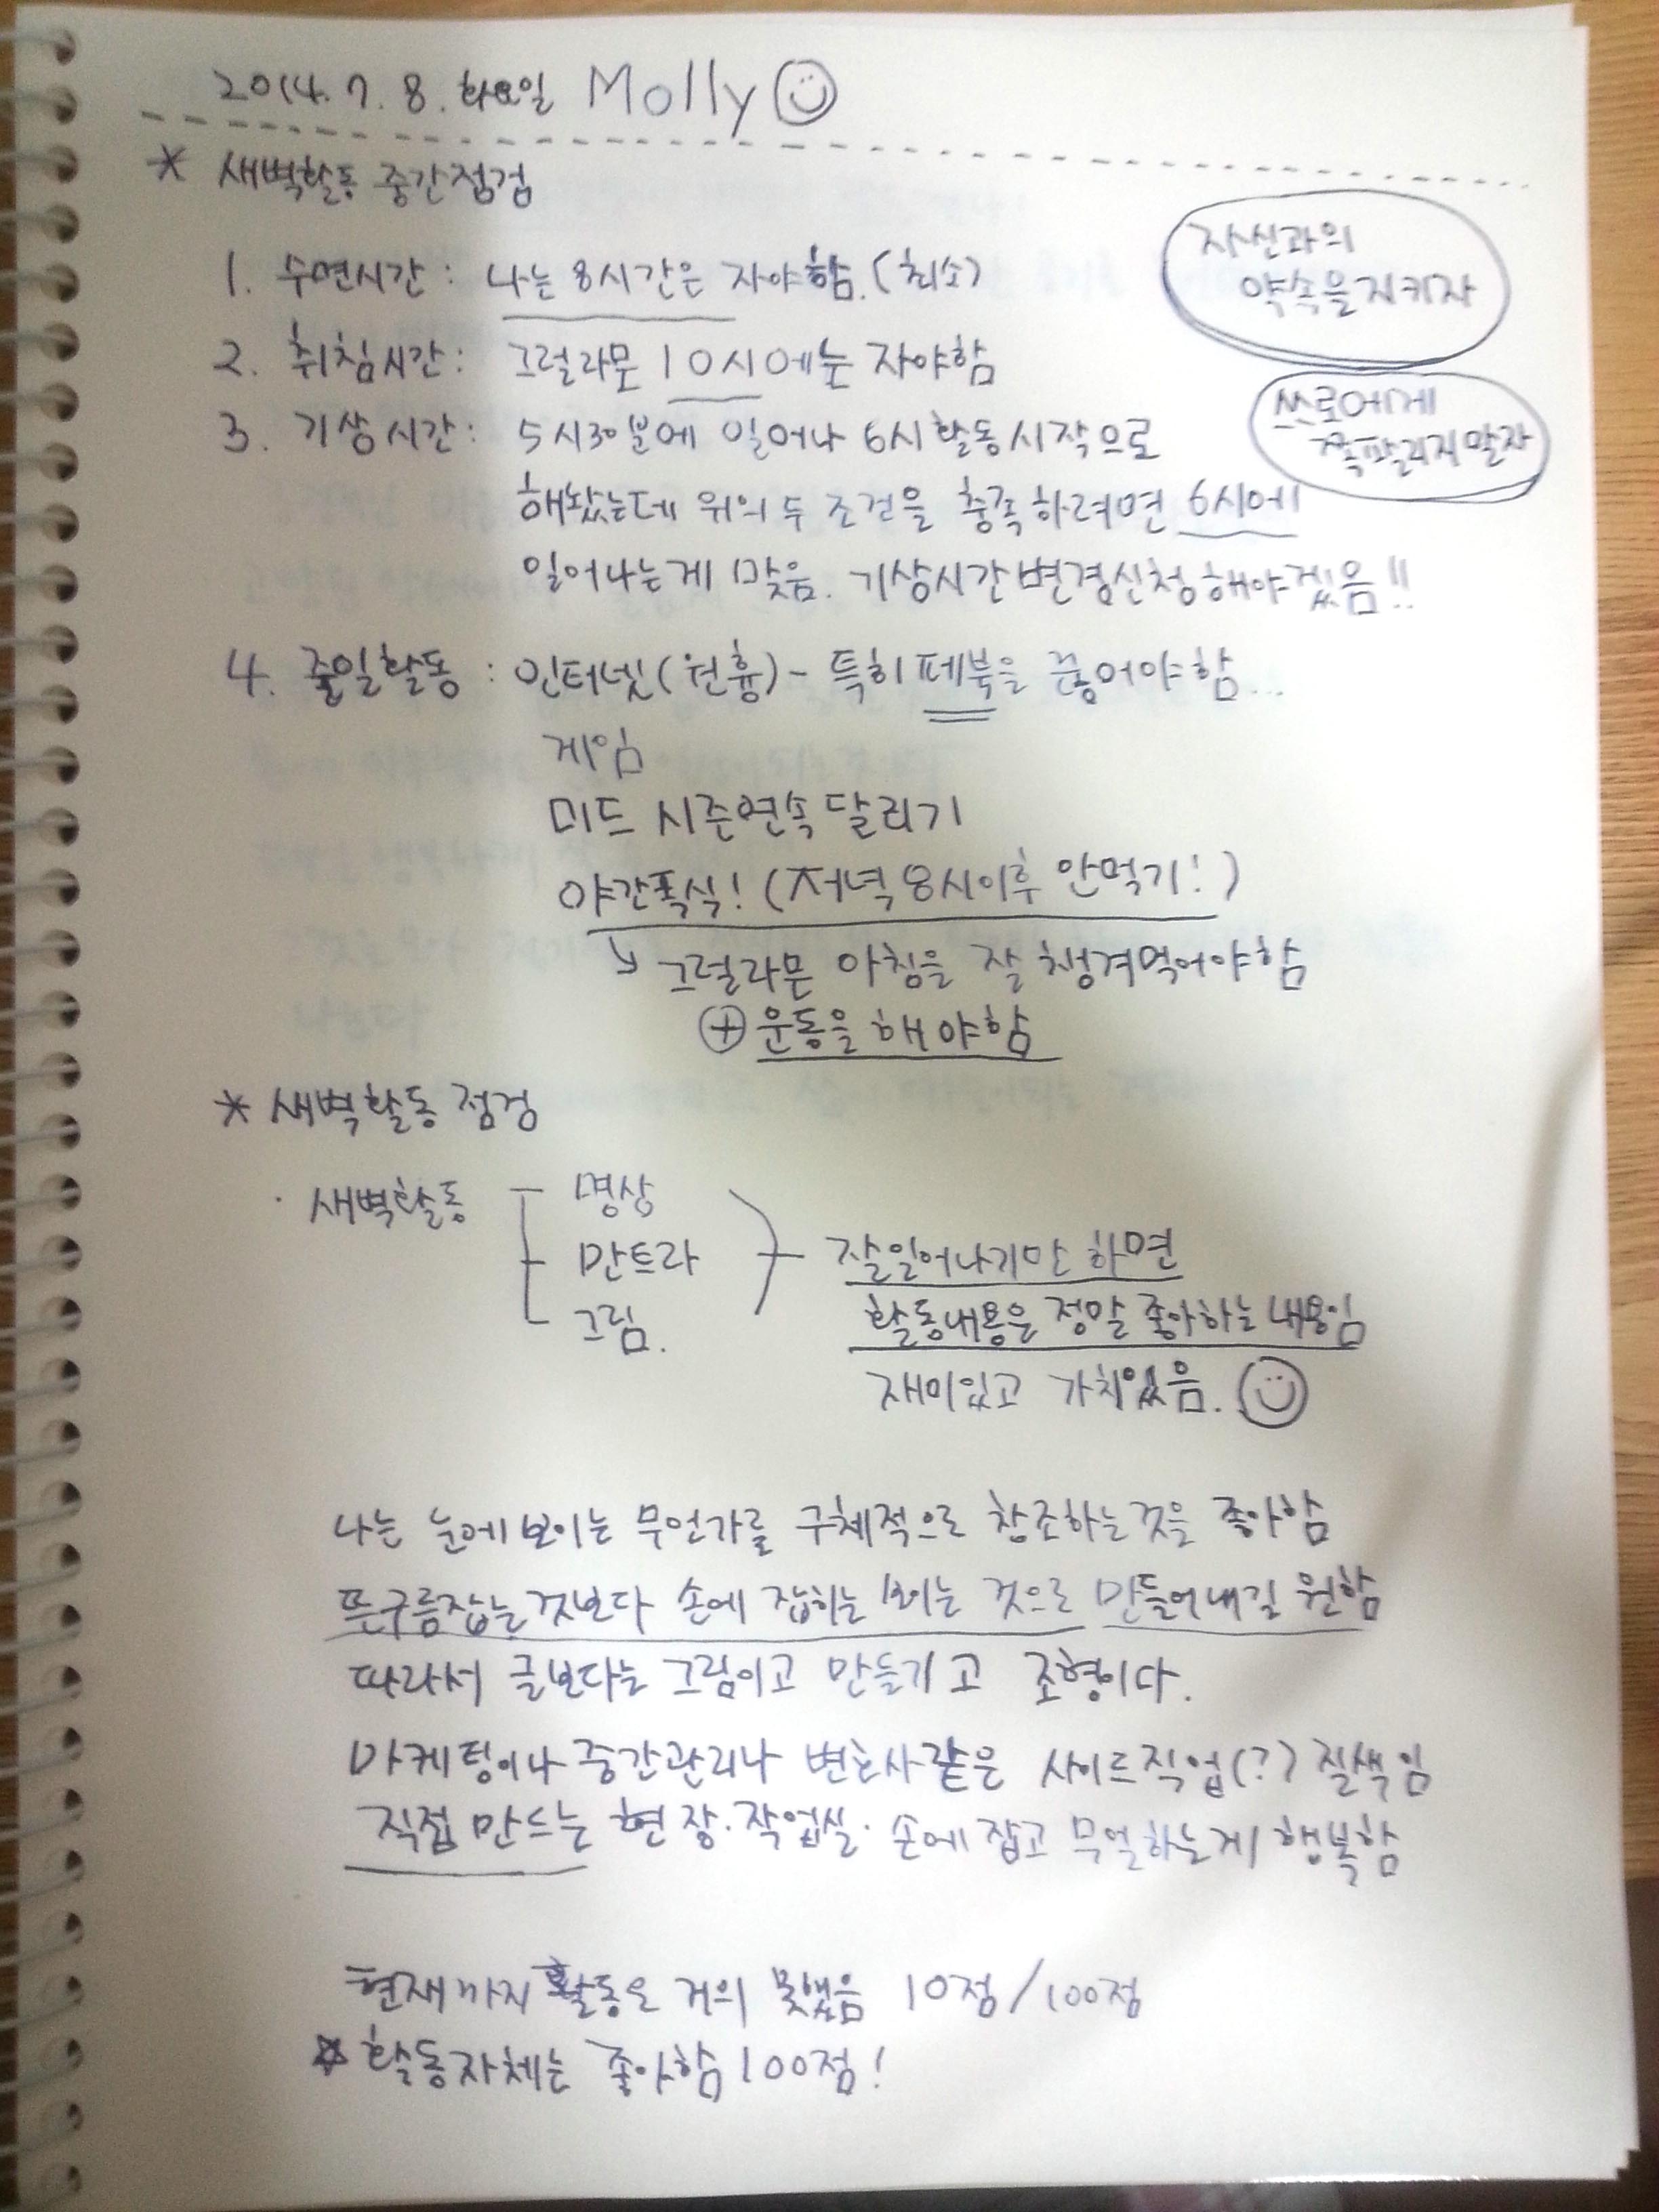 2014. 7. 8. 화요일 Molly
* 새벽활동 중간점검
자신과의
약속을 지키자
1. 수면시간 : 나는 8시간은 자야함. (최소)
2. 취침시간 : 그럴라믄 10시에는 자야함
쓰로에게
쪽팔리지말자
3. 기상시간 : 5시30분에 일어나 6시 활동시작으로
해봤는데 위의 두 조건을 충족하려면 6시에
일어나는게 맞음. 기상시간변경신청해야겠음!!
4. 줄일활동 : 인터넷(원흉) - 특히 페북을 끊어야함...
게임
미드 시즌연속달리기
야간폭식! (저녁 8시이후 안먹기!)
↘ 그럴라믄 아침을 잘 챙겨먹어야함
⊕ 운동을 해야함
* 새벽활동 점검
· 새벽활동
명상
만트라
그림.
잘일어나기만 하면
활동내용은 정말 좋아하는 내용임
재미있고 가치있음.
나는 눈에보이는 무언가를 구체적으로 창조하는것을 좋아함
뜬구름잡는것보다 손에 잡히는 보이는 것으로 만들어내길 원함
따라서 글보다는 그림이고 만들기고 조형이다.
마케팅이나 중간관리나 변호사같은 사이드직업(?) 질색임
직접 만드는 현장·작업실· 손에 잡고 무얼하는게 행복함
현재까지 활동은 거의 못했음 10점/100점
☆ 활동자체는 좋아함 100점!